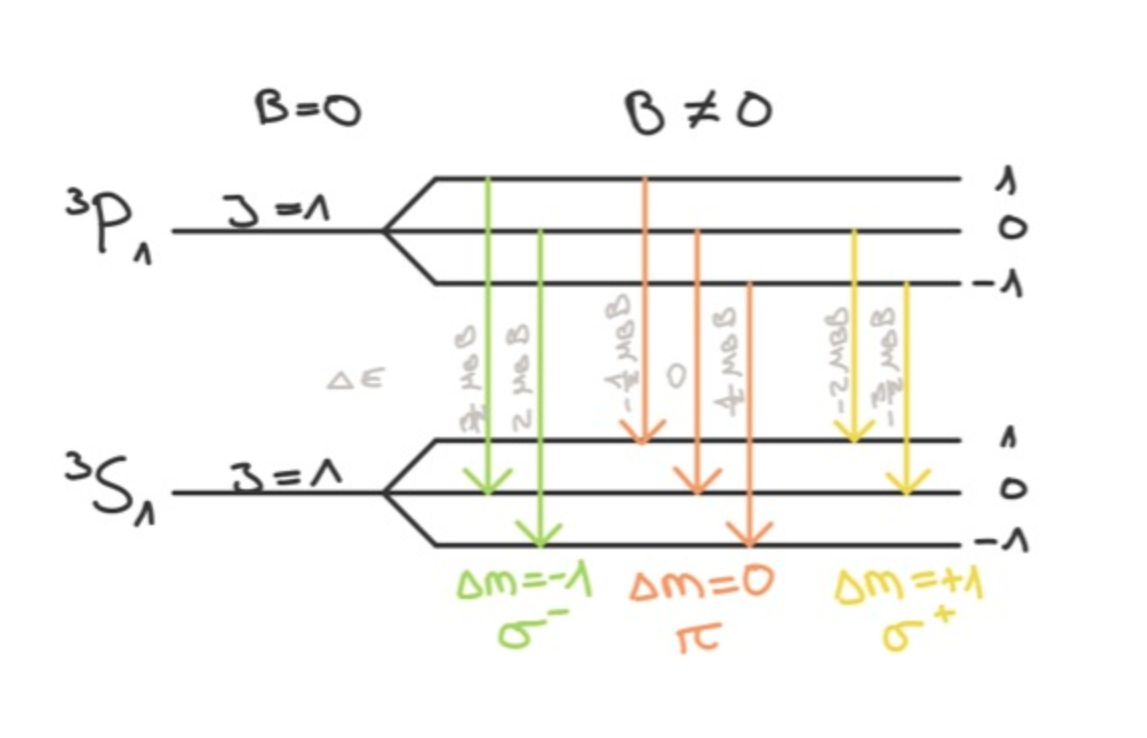 B=0
B ≠ 0
³P₁
J=1
1
0
-1
ΔE
3/2 μBB
2 μBB
-1/2 μBB
0
1/2 μBB
-2 μBB
-3/2 μBB
³S₁
J=1
1
0
-1
Δm=-1
Δm=0
Δm=+1
σ⁻
π
σ⁺